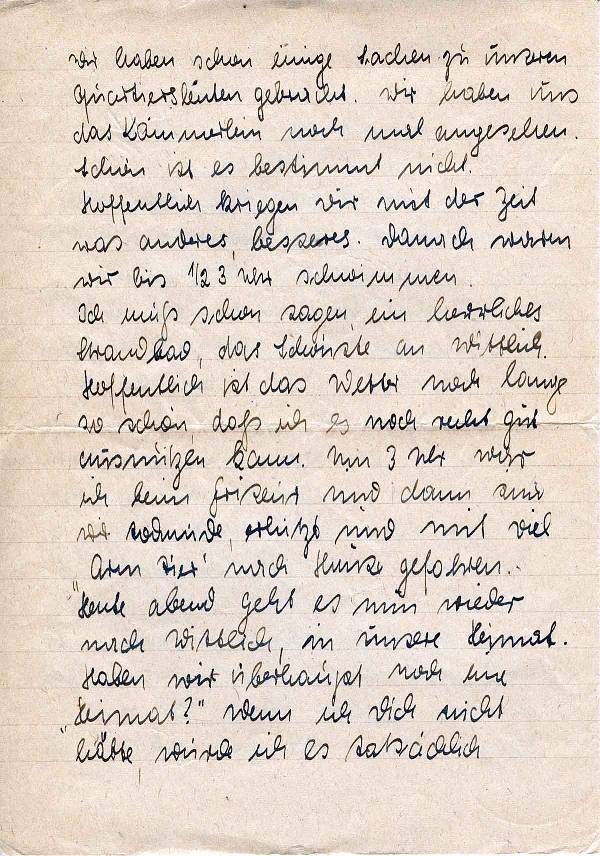 wir haben schon einige Sachen zu unseren
Quartiersleuten gebracht. Wir haben uns
das Kämmerlein noch mal angesehen.
Schön ist es bestimmt nicht.
Hoffentlich kriegen wir mit der Zeit
was anderes, besseres. Danach waren
wir bis 1/2 3 Uhr schwimmen.
Ich muß schon sagen, ein herrliches
Strandbad, das Schönste an Wittlich.
Hoffentlich ist das Wetter noch lange
so schön, daß ich es noch recht gut
ausnützen kann. Um 3 Uhr war
ich beim Friseur und dann sind
wir todmüde, erhitzt und mit viel
nach Hause gefahren.
"Heute abend geht es nun wieder
nach Wittlich, in unsere Heimat.
Haben wir überhaupt noch eine
"Heimat?" Wenn ich Dich nicht
hätte, würde ich es tatsächlich